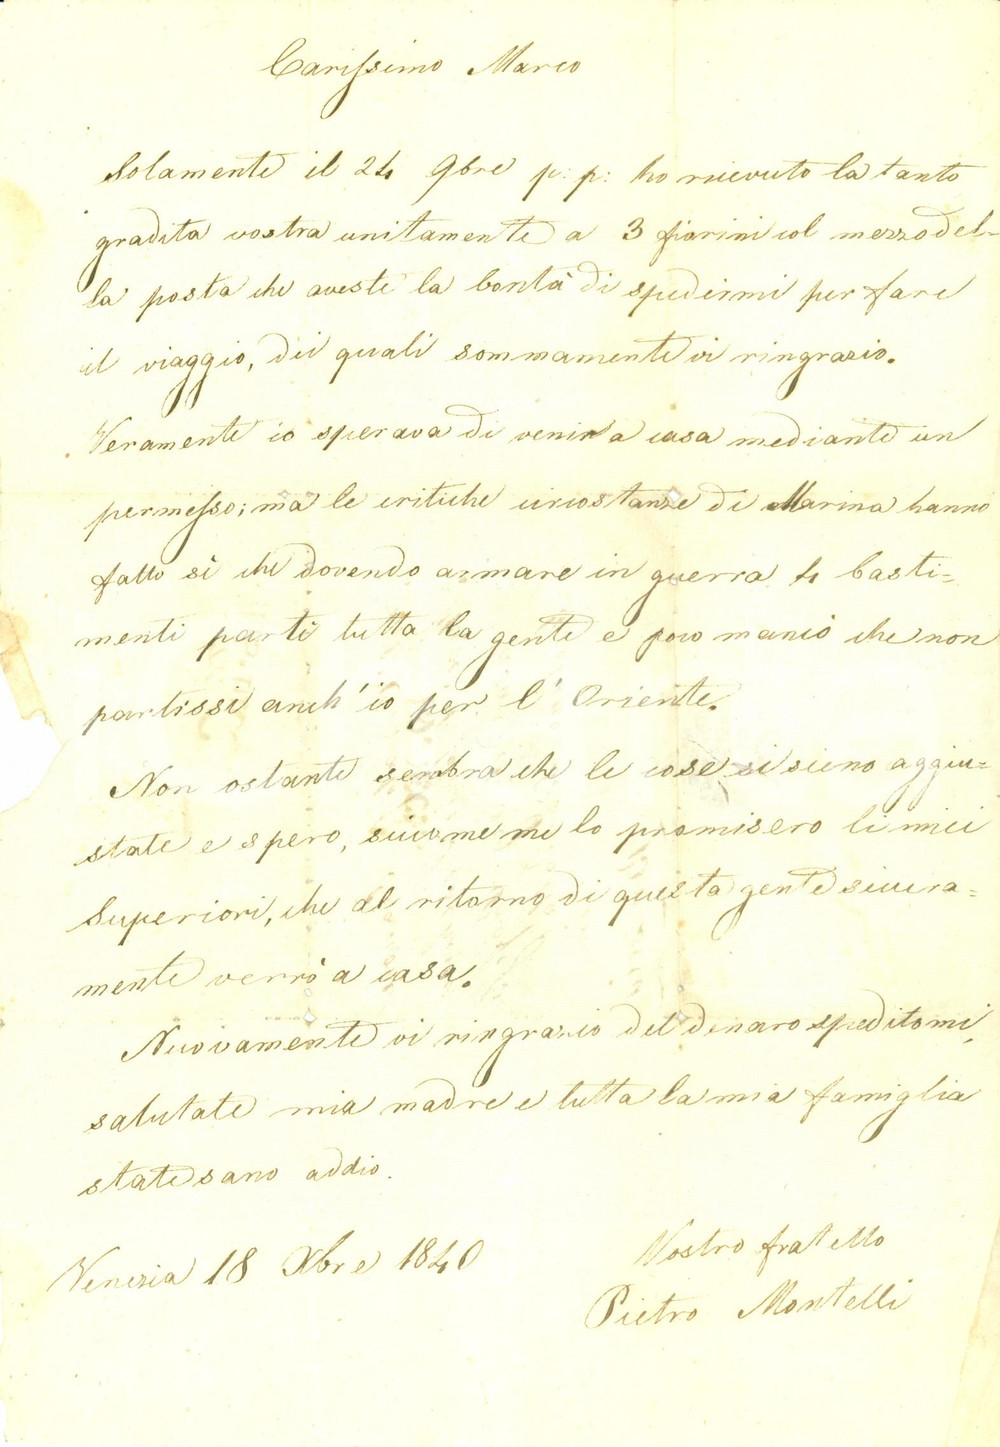 Carissimo Marco
Solamente il 24 9bre p: p: ho ricevuto la tanto
gradita vostra unitamente a 3 fiorini col mezzo del-
la posta che aveste la bontà di spedirmi per fare
il viaggio, dei quali sommamente vi ringrazio.
Veramente io sperava di venir a casa mediante un
permesso; ma le critiche circostanze di Marina hanno
fatto sì che dovendo armare in guerra 4 basti=
menti partì tutta la gente e poco mancò che non
partissi anch'io per l'Oriente.
Non ostante sembra che le cose si sieno aggiu=
state e spero, siccome me lo promisero li miei
Superiori, che al ritorno di questa gente sicura=
mente verrò a casa.
Nuovamente vi ringrazio del denaro speditomi,
salutate mia madre e tutta la mia famiglia
state sano addio.
Venezia 18 Xbre 1840
Vostro fratello
Pietro Montelli